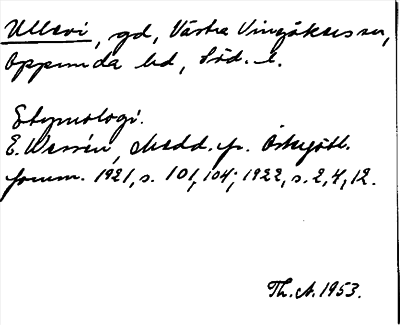 Ullevi, gd, Västra Vingåkers sn,
Oppunda hd, Söd. l.
Etymologi.
E. Wessén, Medd. fr. Östergötl.
fornm. 1921, s. 101, 104; 1922, s. 2, 4, 12.
Th. A. 1953.